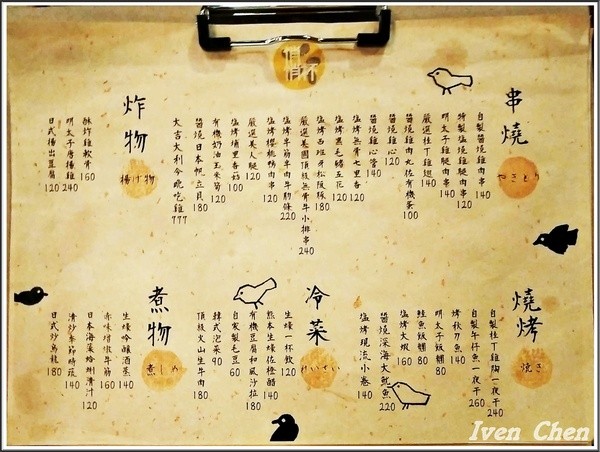 串燒
やきとり
自製醬燒雞肉串 140
特製塩燒雞腿肉串 120
明太子雞腿肉串 140
嚴選桂丁雞翅 140
醬燒雞肉丸佐有機蛋 100
醬燒雞心 120
醬燒雞心管 140
塩烤無骨七里香 120
塩烤黑毛豬五花 120
塩烤西班牙松阪豚 180
嚴選美國頂級無骨牛小排串 240
塩烤牛筋半筋半肉牛肋條 220
塩烤櫻桃鴨肉串 140
嚴選美人腿 120
塩烤埔里香菇 100
有機奶油玉米筍 120
醬燒日本帆立貝 180
大吉大利今晚吃雞 777
炸物
揚げ物
酥炸雞軟骨 160
明太子唐揚雞 240
日式揚出豆腐 120
燒烤
焼き
自製桂丁雞胸一夜干 240
自製午仔魚一夜干 260
烤秋刀魚 140
明太子飯糰 80
鮭魚飯糰 80
塩烤大蝦 160
醬燒深海大魷魚 220
塩烤現流小卷 140
冷菜
れいさい
生蠔一杯飲 120
熊本生蠔佐橙醋 140
有機豆腐和風沙拉 180
自家製毛豆 60
韓式泡菜 90
頂級火山生牛肉 180
煮物
煮しめ
生蠔吟釀酒蒸 140
赤味噌燉牛筋 160
日本海菜蛤蜊清汁 120
清炒季節時蔬 140
日式炒烏龍 180
Iven Chen